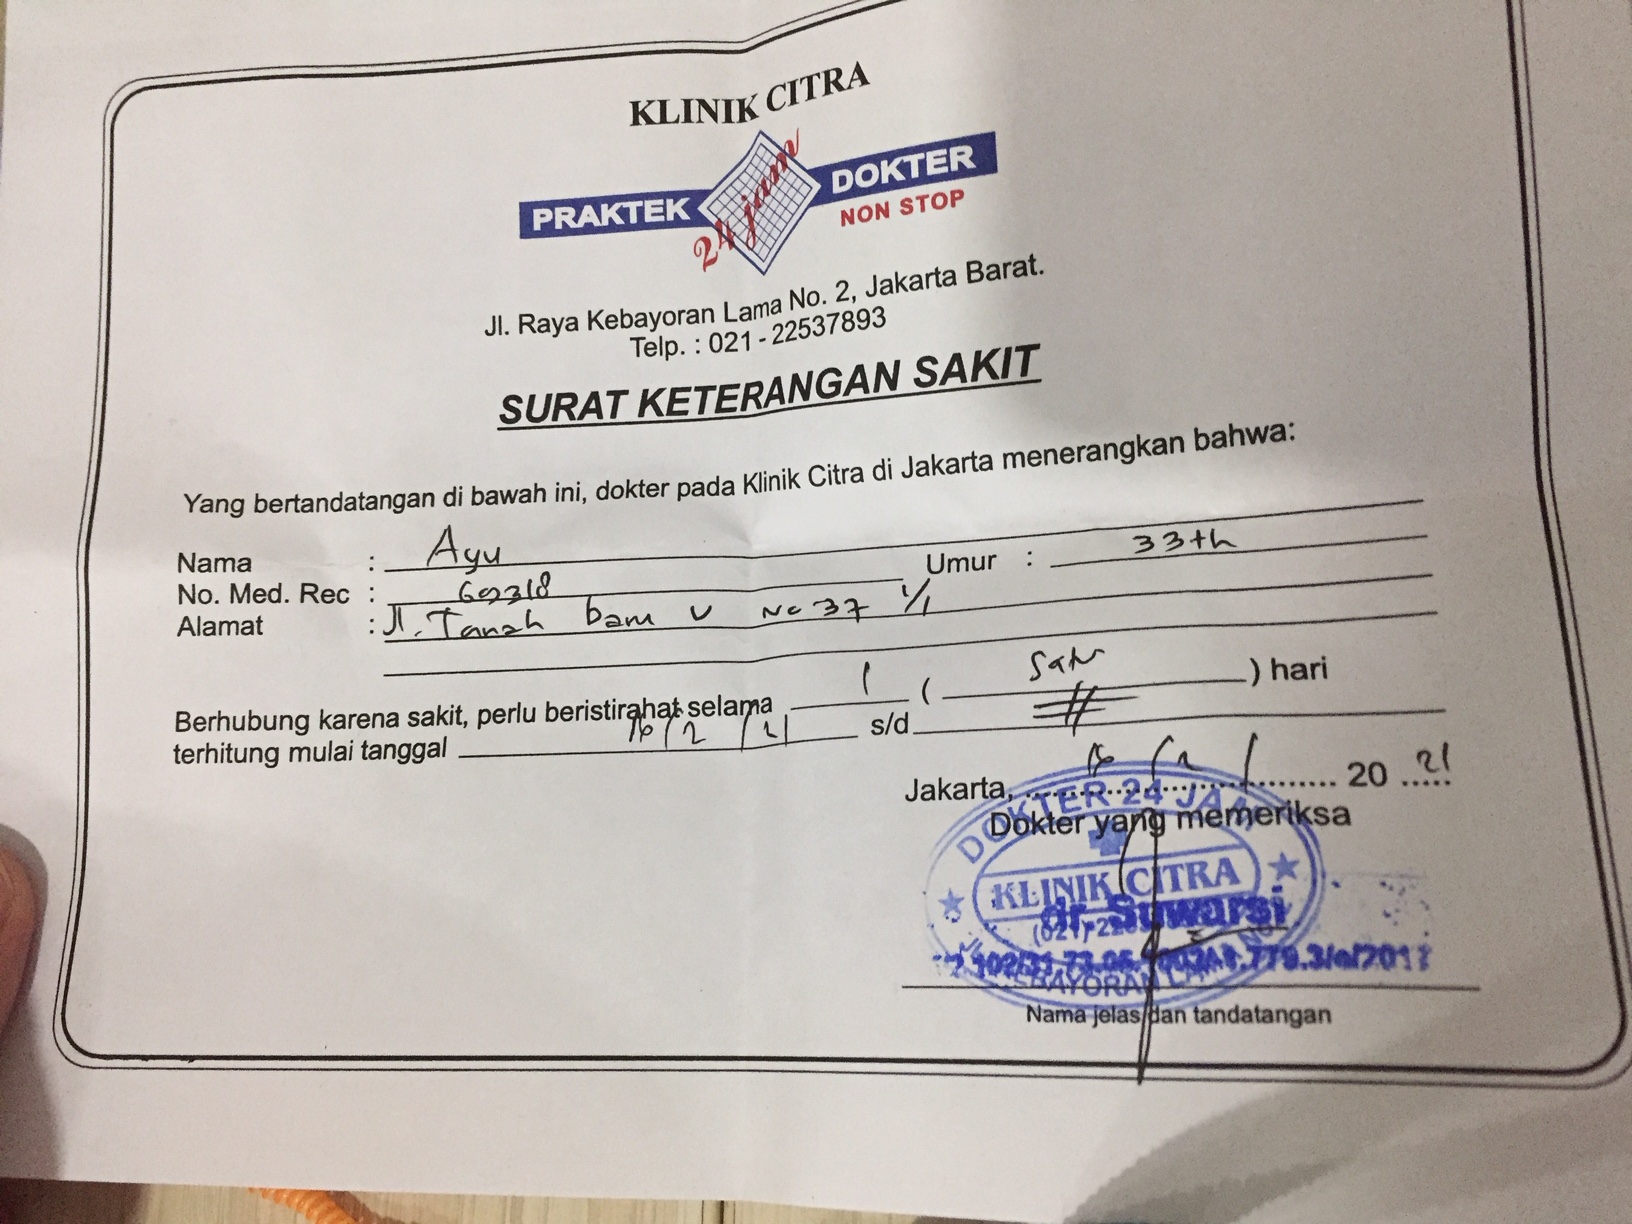 KLINIK CITRA
PRAKTEK 24 jam DOKTER
NON STOP
Jl. Raya Kebayoran Lama No. 2, Jakarta Barat.
Telp. : 021 - 22537893
SURAT KETERANGAN SAKIT
Yang bertandatangan di bawah ini, dokter pada Klinik Citra di Jakarta menerangkan bahwa:
Nama : Ayu Umur : 33th
No. Med. Rec :
Alamat : Jl. Tanah baru V No 37
Berhubung karena sakit, perlu beristirahat selama 1 ( Satu ) hari
terhitung mulai tanggal s/d
Jakarta, 20 21
Dokter yang memeriksa
DOKTER 24 JAM
KLINIK CITRA
Nama jelas dan tandatangan